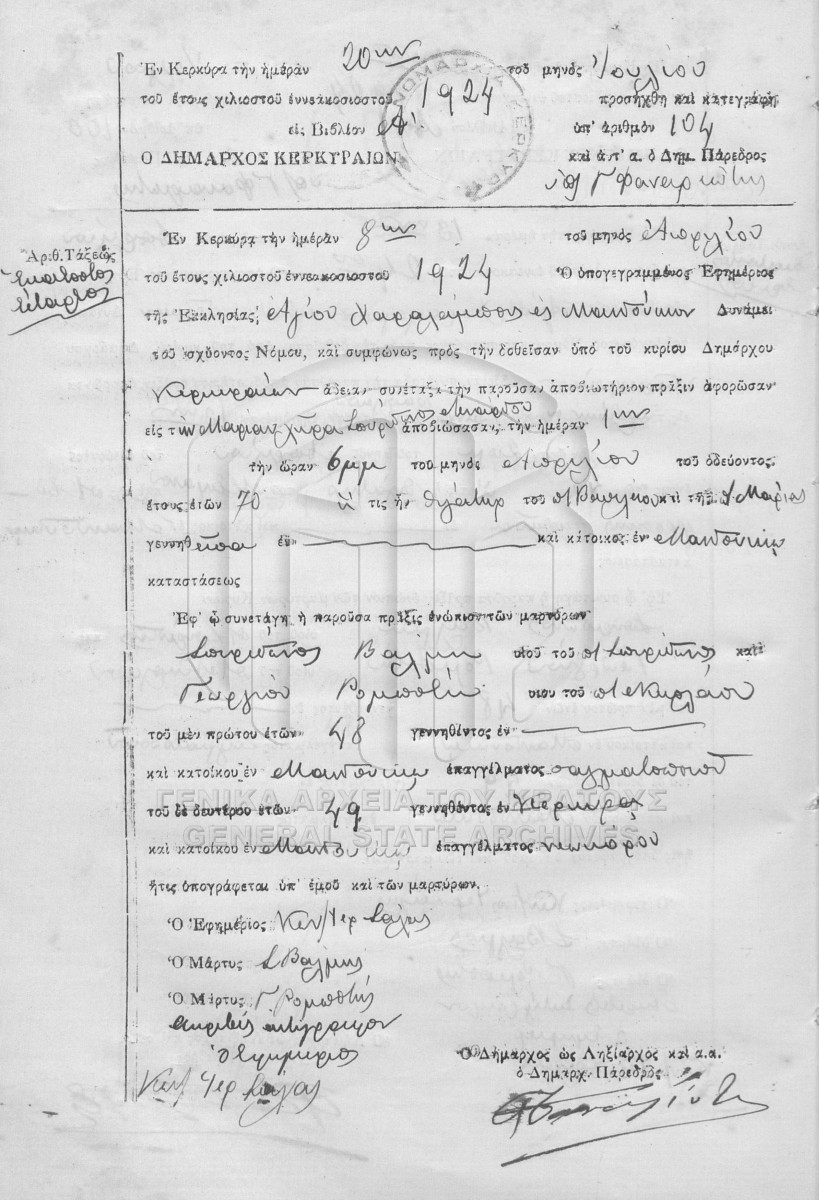 Ἐν Κερκύρᾳ τὴν ἡμέραν 20ην τοῦ μηνὸς Ἰουλίου
τοῦ ἔτους χιλιοστοῦ ἐννεακοσιοστοῦ 1924 προσήχθη καὶ κατεγράφη
εἰς Βιβλίον Α' ὑπ' ἀριθμὸν 104
Ο ΔΗΜΑΡΧΟΣ ΚΕΡΚΥΡΑΙΩΝ καὶ ἀντ' α. ὁ Δημ. Πάρεδρος
ΝΟΜΑΡΧΙΑ ΚΕΡΚΥΡΑΣ
Ἐν Κερκύρᾳ τὴν ἡμέραν 8ην τοῦ μηνὸς Ἀπριλίου
Ἀριθ. Τάξεως
Ἑκατοστὸς
τέταρτος
τοῦ ἔτους χιλιοστοῦ ἐννεακοσιοστοῦ 1924 Ὁ ὑπογεγραμμένος Ἐφημέριος
τῆς Ἐκκλησίας Ἁγίου Χαραλάμπους ἐν Μαντούκιον Δυνάμει
τοῦ ἰσχύοντος Νόμου, καὶ συμφώνως πρὸς τὴν δοθεῖσαν ὑπὸ τοῦ κυρίου Δημάρχου
Κερκυραίων ἄδειαν συνέταξα τὴν παροῦσαν ἀποβιωτήριον πρᾶξιν ἀφορῶσαν
εἰς τὴν Μαρίαν χήρα Σπυρίδωνος ἀποβιώσασαν, τὴν ἡμέραν 1ην
τὴν ὥραν 6μμ τοῦ μηνὸς Ἀπριλίου τοῦ ὁδεύοντος
ἔτους ἐτῶν 70 ἥτις ἦν θυγάτηρ τοῦ καὶ τῆς Μαρίας
γεννηθεῖσα ἐν καὶ κάτοικος ἐν Μαντούκιῳ
καταστάσεως
Ἐφ' ᾧ συνετάγη ἡ παροῦσα πρᾶξις ἐνώπιον τῶν μαρτύρων
Σπυρίδωνος Βαλμῆ υἱοῦ τοῦ π Σπυρίδωνος καὶ
Γεωργίου Ρομποτῆ υἱοῦ τοῦ π Νικολάου
τοῦ μὲν πρώτου ἐτῶν 48 γεννηθέντος ἐν
καὶ κατοίκου ἐν Μαντούκιῳ ἐπαγγέλματος σαγματοποιοῦ
τοῦ δὲ δευτέρου ἐτῶν 49 γεννηθέντος ἐν Κέρκυρᾳ
καὶ κατοίκου ἐν Μαντούκιῳ ἐπαγγέλματος νεωκόρου
ΓΕΝΙΚΑ ΑΡΧΕΙΑ ΤΟΥ ΚΡΑΤΟΥΣ
GENERAL STATE ARCHIVES
ἥτις ὑπογράφεται ὑπ' ἐμοῦ καὶ τῶν μαρτύρων.
Ὁ Ἐφημέριος
Ὁ Μάρτυς Σ Βαλμῆς
Ὁ Μάρτυς Γ Ρομποτῆς
Ἀκριβὲς ἀντίγραφον
Ὁ Ἐφημέριος
Ὁ Δήμαρχος ὡς Ληξίαρχος καὶ α.α.
ὁ Δημαρχ. Πάρεδρος